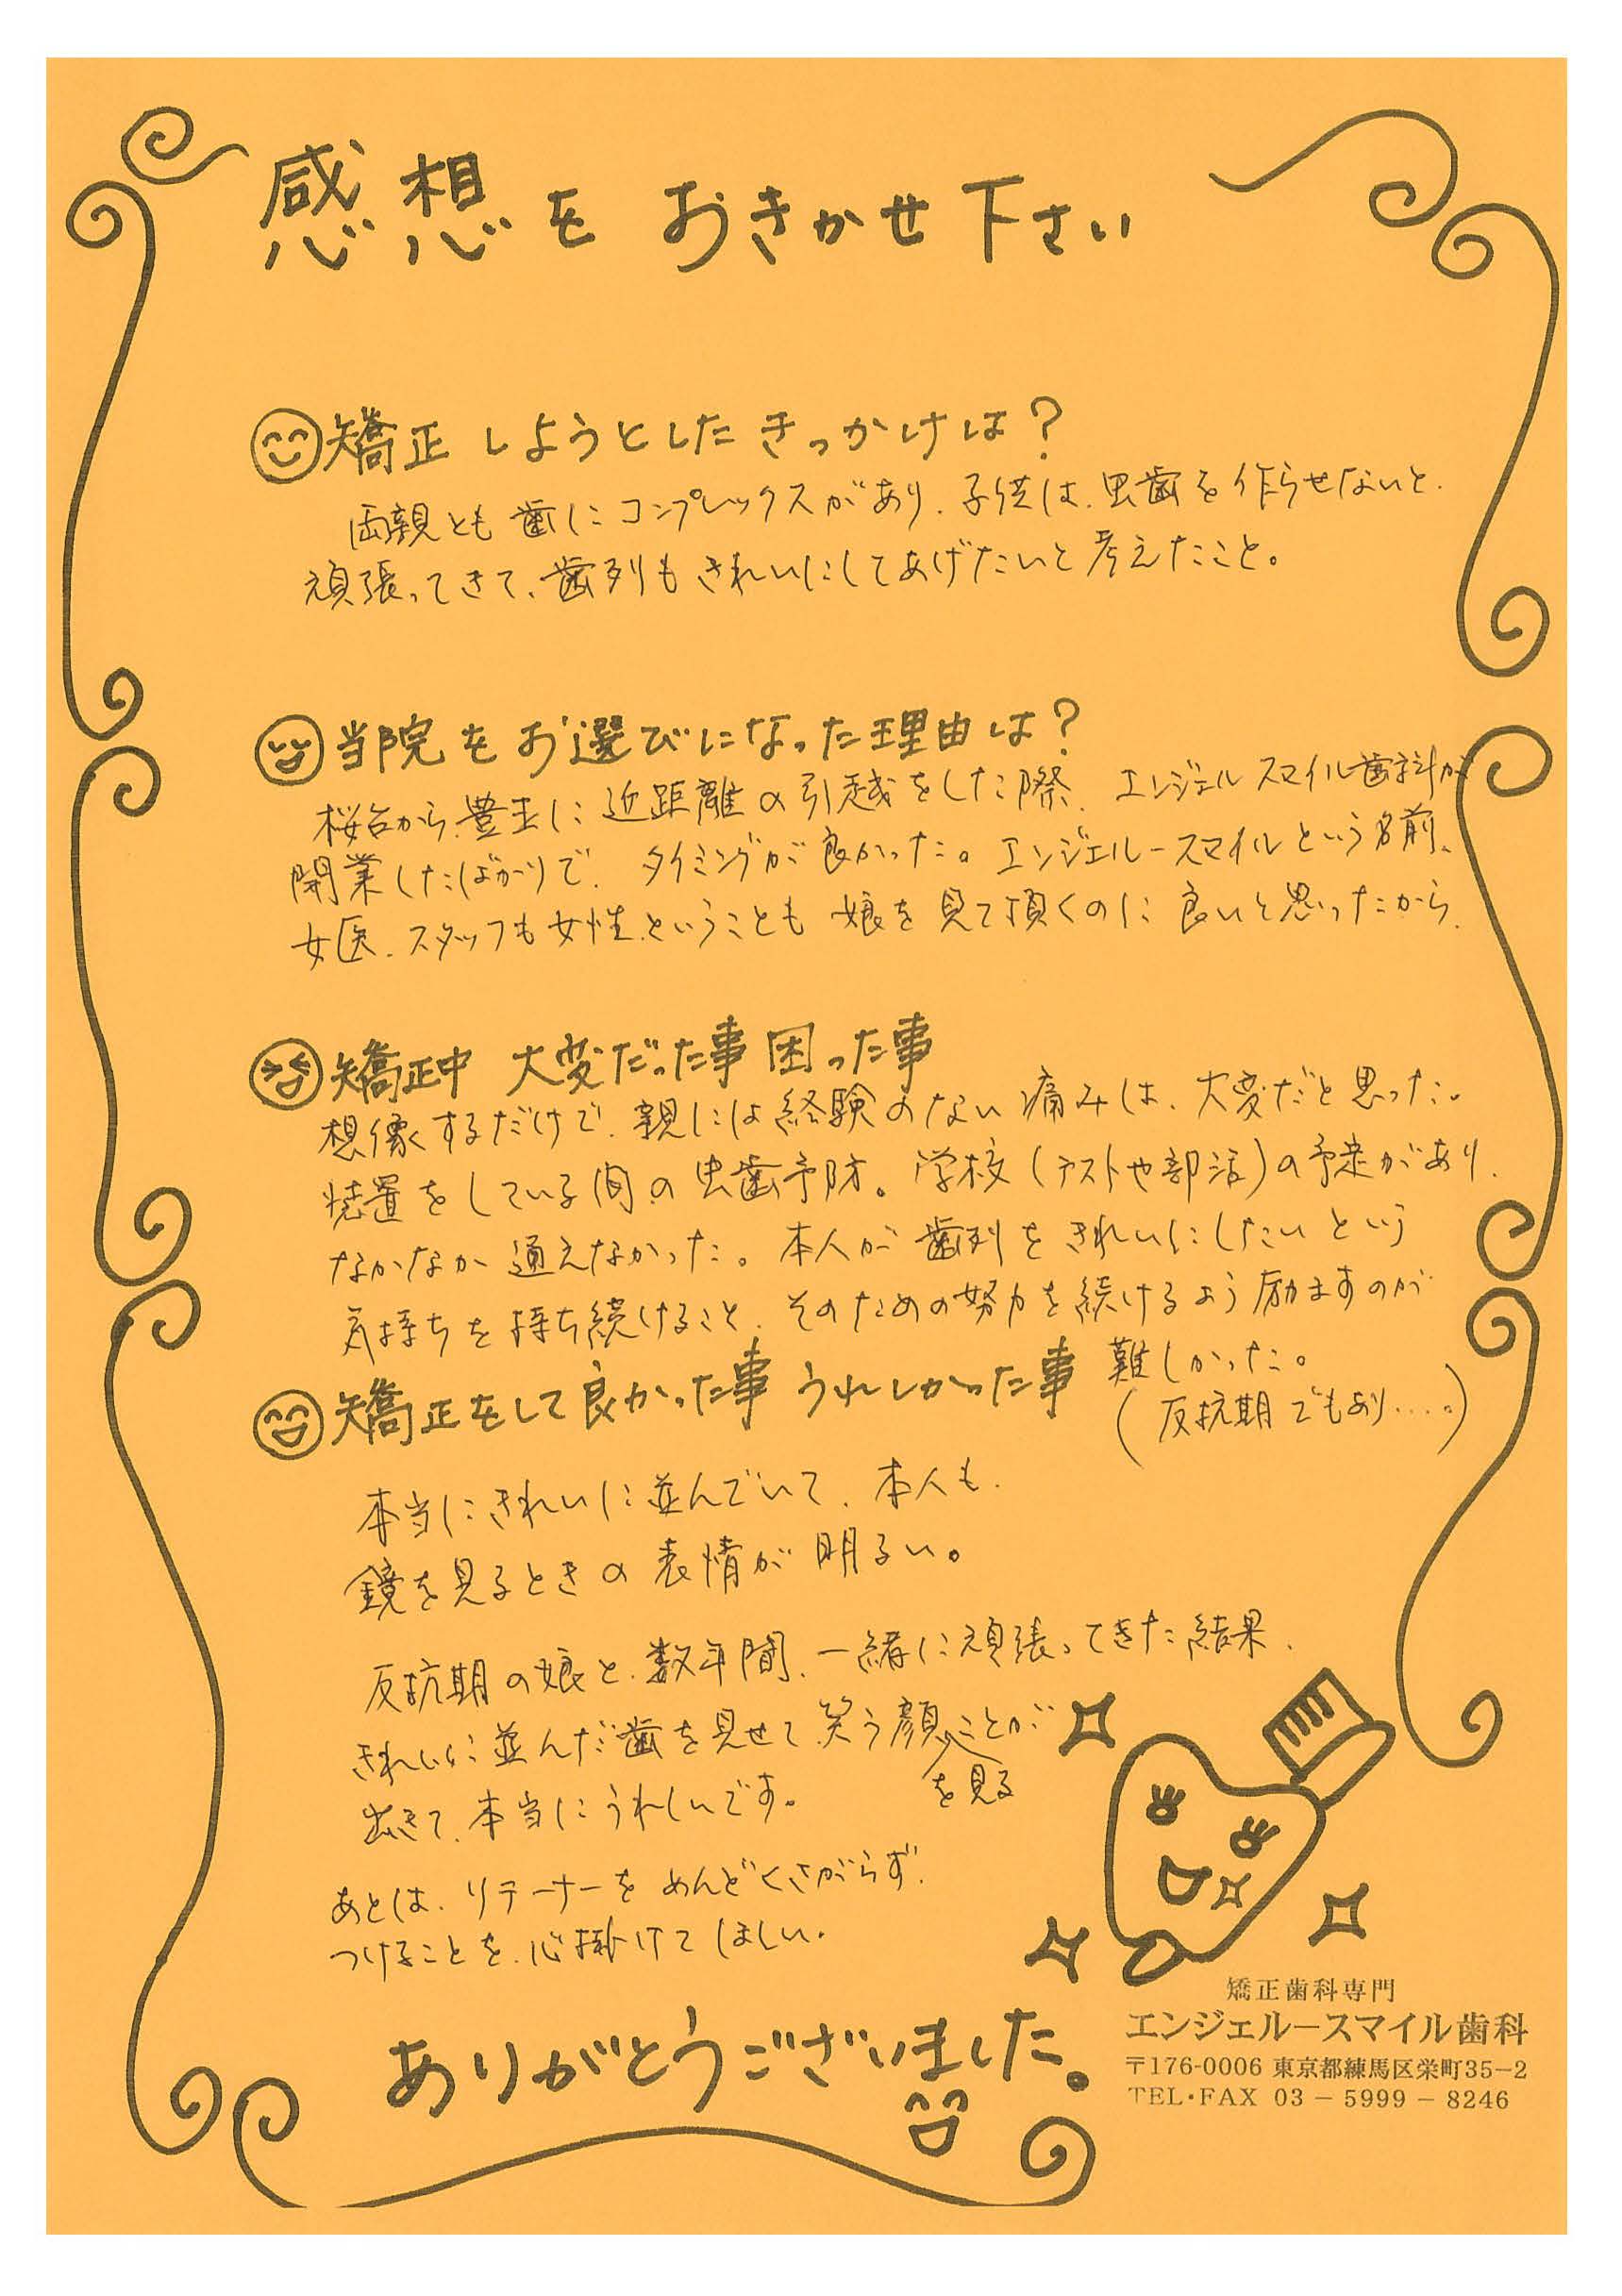 感想をおきかせ下さい
矯正しようとしたきっかけは？
両親とも歯にコンプレックスがあり、子供は、虫歯を作らせないと、
頑張ってきて、歯列もきれいにしてあげたいと考えたこと。
当院をお選びになった理由は？
桜台から、豊玉に近距離の引越をした際、エンジェルスマイル歯科が
開業したばかりで、タイミングが良かった。エンジェルースマイルという名前、
女医、スタッフも女性ということも娘を見て頂くのに良いと思ったから、
矯正中 大変だった事 困った事
想像するだけで、親には経験のない痛みは、大変だと思った。
装置をしている間の虫歯予防。学校（テストや部活）の予定があり、
なかなか通えなかった。本人が歯列をきれいにしたいという
気持ちを持ち続けること、そのための努力を続けるよう励ますのが
難しかった。
（反抗期でもあり....。）
矯正をして良かった事 うれしかった事
本当にきれいに並んでいて、本人も、
鏡を見るときの表情が明るい。
反抗期の娘と、数年間、一緒に頑張ってきた結果、
きれいに並んだ歯を見せて笑う顔ことが
を見る
出きて、本当にうれしいです。
あとは、リテーナーをめんどくさがらず、
つけることを、心掛けてほしい。
ありがとうございました。
矯正歯科専門
エンジェルースマイル歯科
〒176-0006 東京都練馬区栄町35−2
TEL・FAX 03−5999−8246